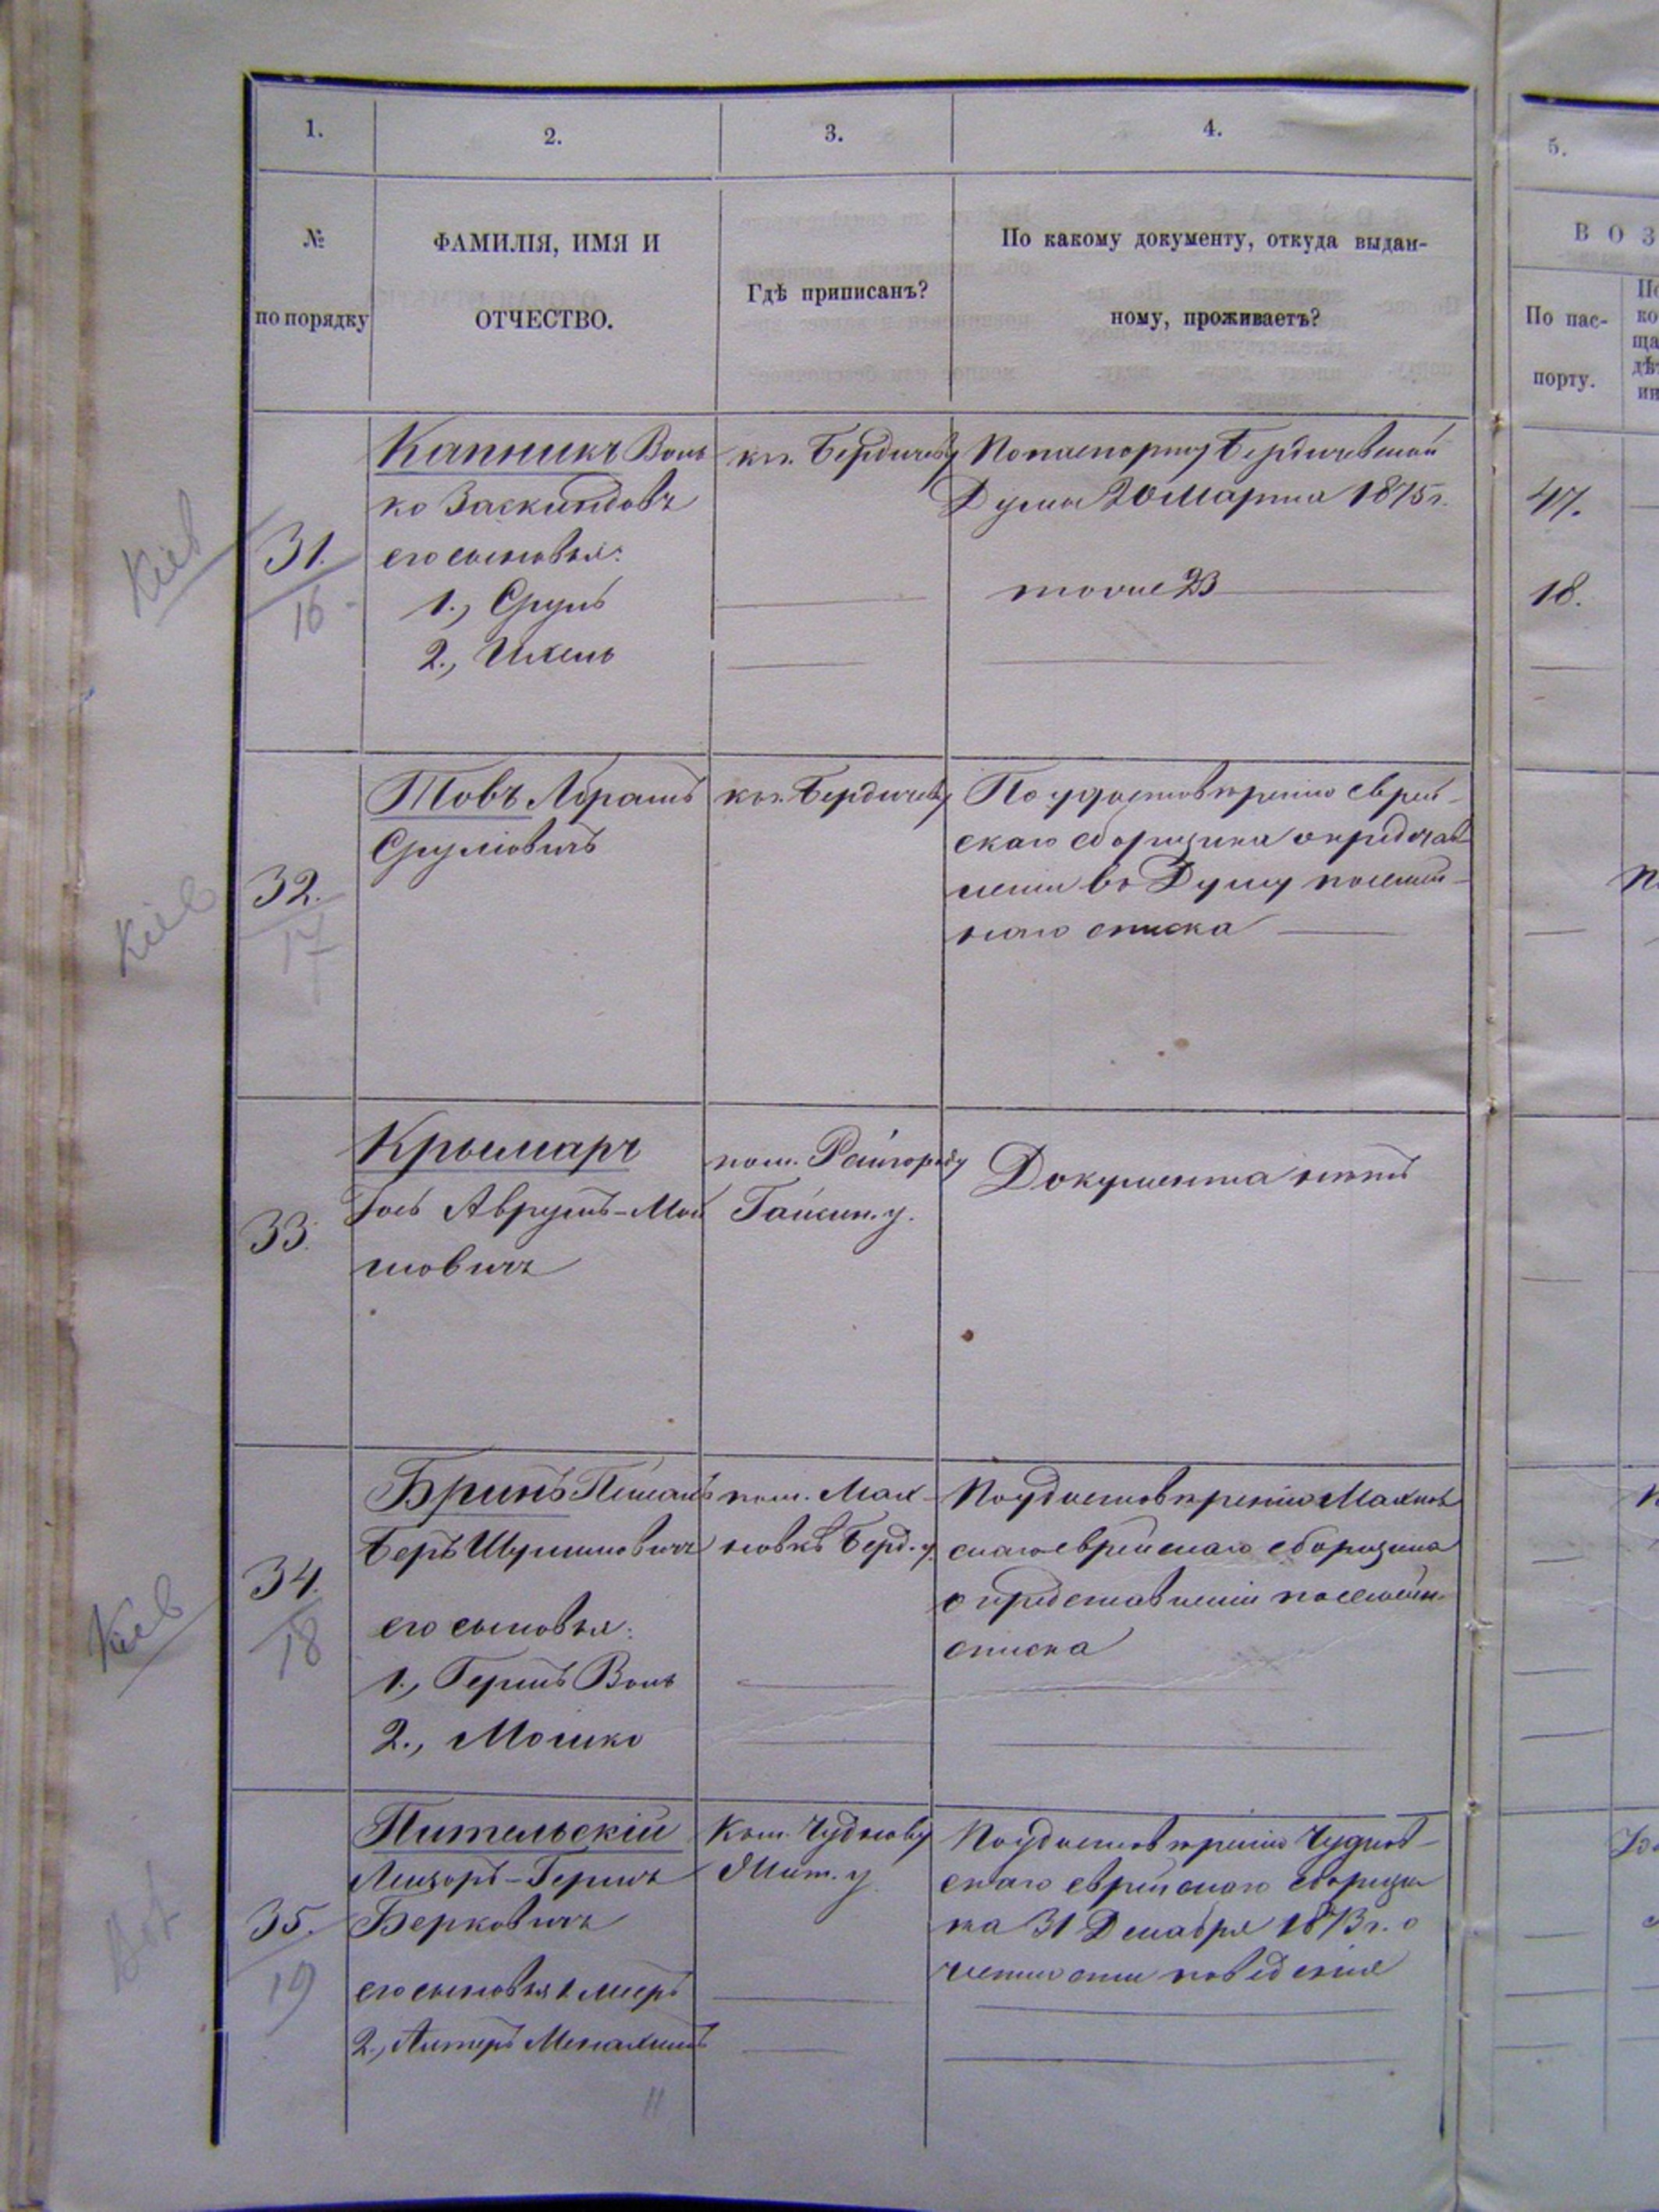 1.
2.
3.
4.
5.
№
по порядку
ФАМИЛІЯ, ИМЯ И
ОТЧЕСТВО.
Гдѣ приписанъ?
По какому документу, откуда выдан-
ному, проживаетъ?
ВОЗ
По пас-
порту.
Кіев
31.
16
Капникъ Воль
ко Заскиндовъ
его сыновья:
1., Сруль
2., Ихель
къ. Бердичеву
По паспорту Бердичевской
Думы 20 Марта 1875 г.
тоже 23
47.
18.
Кіев
32.
17
Товъ Абрамъ
Сруліовичъ
къ. Бердичеву
По удостовѣренію еврей-
скаго сборщика о представ
леніи въ Думу посемей-
наго списка
33.
Крымаръ
Іось Аврумъ-Мой
шовичъ
ком. Райгороду
Гайсин. у.
Документа нѣтъ
Кіев
34.
18
Бринъ
Беръ Шулимовичъ
его сыновья:
1., Гершъ Воль
2., Мошко
ком. Мах-
новкѣ Берд. у.
По удостовѣренію Махнов
скаго еврейскаго сборщика
о представленіи посемейн.
списка
35.
19
Пительскій
Лейзоръ-Гершъ
Берковичъ
его сыновья 1 Мееръ
2., Алтеръ Менахимъ
Ком. Чуднову
Жит. у.
По удостовѣренію Чуднов-
скаго еврейскаго сборщи
ка 31 Декабря 1873 г. о
честности поведенія